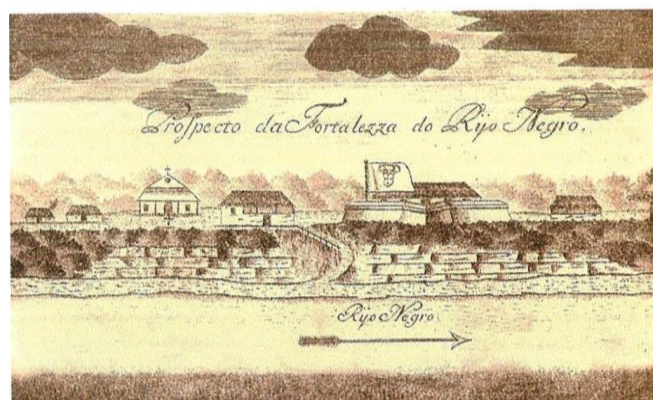 Prospecto da Fortalezza do Rijo Negro.
Rijo Negro.